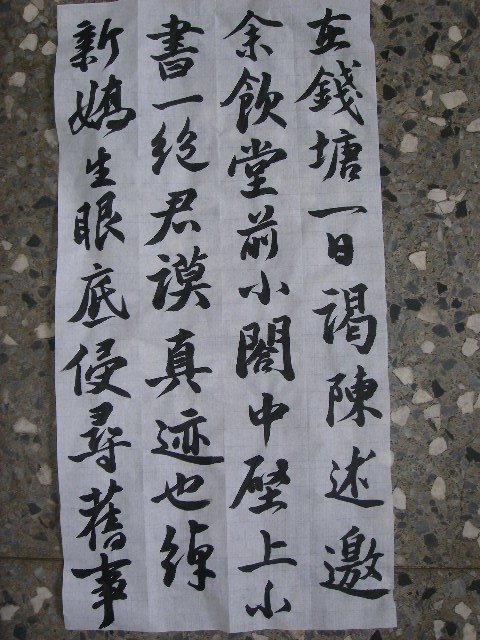 在錢塘一日謁陳述邀
余飲堂前小閣中壁上小
書一絶君謨真迹也綽
新嬌生眼底侵尋舊事